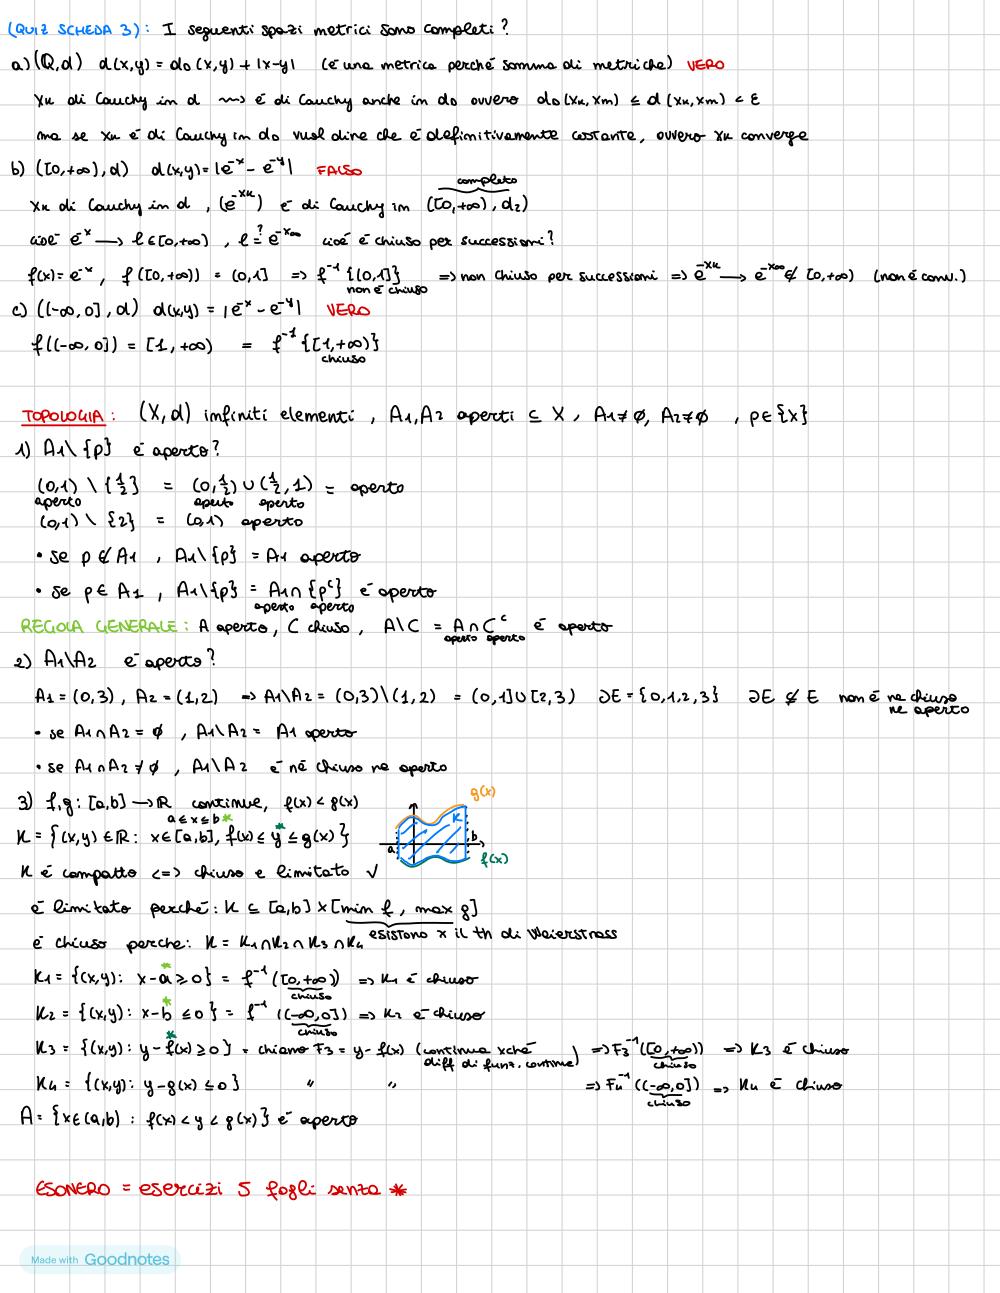 (QUIZ SCHEDA 3): I seguenti spazi metrici sono completi?
a) (Q,d) d(x,y) = d₀(x,y) + |x-y| (è una metrica perché somma di metriche) VERO
xₖ di Cauchy in d ⇝ è di Cauchy anche in d₀ ovvero d₀(xₖ,xₘ) ≤ d(xₖ,xₘ) < ε
ma se xₖ è di Cauchy in d₀ vuol dire che è definitivamente costante, ovvero xₖ converge
b) ([0,+∞),d) d(x,y) = |e⁻ˣ - e⁻ʸ| FALSO
completo
xₖ di Cauchy in d, (e^-xₖ) è di Cauchy in ([0,+∞), d₂)
cioè e⁻ˣ → l ∈ [0,+∞), l =? e^-x∞ cioè è chiuso per successioni?
f(x) = e⁻ˣ, f([0,+∞)) = (0,1] => f⁻¹{(0,1]} => non chiuso per successioni => e^-xₖ → e^-x∞ ∉ [0,+∞) (non è conv.)
non è chiuso
c) ((-∞,0],d) d(x,y) = |e⁻ˣ - e⁻ʸ| VERO
f((-∞,0]) = [1,+∞) = f⁻¹{[1,+∞)}
chiuso
TOPOLOGIA: (X,d) infiniti elementi, A₁,A₂ aperti ⊆ X, A₁≠∅, A₂≠∅, p∈{x}
1) A₁\{p} è aperto?
(0,1) \ {1/2} = (0,1/2) ∪ (1/2,1) = aperto
aperto aperto aperto
(0,1) \ {2} = (0,1) aperto
• se p∉A₁, A₁\{p} = A₁ aperto
• se p∈A₁, A₁\{p} = A₁∩{pᶜ} è aperto
aperto aperto
REGOLA GENERALE: A aperto, C chiuso, A\C = A∩Cᶜ è aperto
aperto aperto
2) A₁\A₂ è aperto?
A₁ = (0,3), A₂ = (1,2) => A₁\A₂ = (0,3)\(1,2) = (0,1]∪[2,3) ∂E = {0,1,2,3} ∂E ⊄ E non è ne chiuso
ne aperto
• se A₁∩A₂ = ∅, A₁\A₂ = A₁ aperto
• se A₁∩A₂ ≠ ∅, A₁\A₂ è né chiuso ne aperto
3) f,g: [a,b] → ℝ continue, f(x) < g(x)
g(x)
a ≤ x ≤ b *
K = {(x,y) ∈ ℝ: x∈[a,b], f(x) ≤ y ≤ g(x)} *
K
a
b
f(x)
K è compatto <=> chiuso e limitato √
è limitato perché: K ⊆ [a,b] × [min f, max g]
esistono x il th di Weierstrass
è chiuso perche: K = K₁∩K₂∩K₃∩K₄
K₁ = {(x,y): x-a ≥ 0} = f⁻¹([0,+∞)) => K₁ è chiuso
* chiuso
K₂ = {(x,y): x-b ≤ 0} = f⁻¹((-∞,0]) => K₂ è chiuso
* chiuso
K₃ = {(x,y): y-f(x) ≥ 0} = chiamo F₃ = y-f(x) (continua xché diff di funz. continue) => F₃⁻¹([0,+∞)) => K₃ è chiuso
* chiuso
K₄ = {(x,y): y-g(x) ≤ 0} " " => F₄⁻¹((-∞,0]) => K₄ è chiuso
chiuso
A = {x∈(a,b) : f(x) < y < g(x)} è aperto
ESONERO = esercizi 5 fogli senza *
Made with Goodnotes